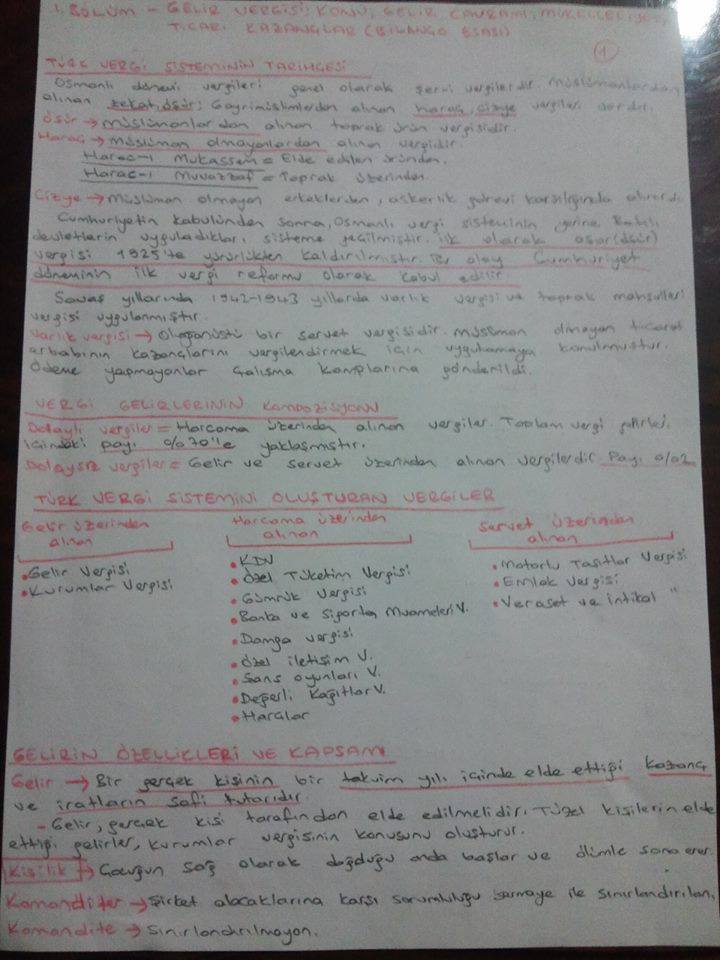 1. BÖLÜM - GELİR VERGİSİ; KONU, GELİR KAVRAMI, MÜKELLEFİYET,
TİCARİ KAZANÇLAR (BİLANÇO ESASI)
1
TÜRK VERGİ SİSTEMİNİN TARİHÇESİ
Osmanlı dönemi vergileri genel olarak şer'i vergilerdir. Müslümanlardan
alınan zekat, öşür; Gayrimüslimlerden alınan haraç, cizye vergileri vardır.
Öşür → Müslümanlardan alınan toprak ürün vergisidir.
Haraç → Müslüman olmayanlardan alınan vergidir.
Harac-ı Mukassem = Elde edilen üründen.
Harac-ı Muvazzaf = Toprak üzerinden.
Cizye → Müslüman olmayan erkeklerden, askerlik görevi karşılığında alınırdı.
Cumhuriyetin kabulünden sonra, Osmanlı vergi sisteminin yerine Batılı
devletlerin uyguladıkları sisteme geçilmiştir. İlk olarak aşar (öşür)
vergisi 1925'te yürürlükten kaldırılmıştır. Bu olay Cumhuriyet
döneminin ilk vergi reformu olarak kabul edilir.
Savaş yıllarında 1942-1943 yıllarda varlık vergisi ve toprak mahsulleri
vergisi uygulanmıştır.
Varlık vergisi → Olağanüstü bir servet vergisidir. Müslüman olmayan ticaret
erbabının kazançlarını vergilendirmek için uygulamaya konulmuştur.
Ödeme yapmayanlar çalışma kamplarına gönderildi.
VERGİ GELİRLERİNİN KOMPOZİSYONU
Dolaylı vergiler = Harcama üzerinden alınan vergiler. Toplam vergi gelirleri
içindeki payı %70'le yaklaşmıştır.
Dolaysız vergiler = Gelir ve servet üzerinden alınan vergilerdir. Payı %2
TÜRK VERGİ SİSTEMİNİ OLUŞTURAN VERGİLER
Gelir üzerinden
alınan
• Gelir Vergisi
• Kurumlar Vergisi
Harcama üzerinden
alınan
• KDV
• Özel Tüketim Vergisi
• Gümrük Vergisi
• Banka ve Sigorta Muameleri V.
• Damga vergisi
• Özel iletişim V.
• Şans oyunları V.
• Değerli Kağıtlar V.
• Harçlar
Servet üzerinden
alınan
• Motorlu Taşıtlar Vergisi
• Emlak vergisi
• Veraset ve intikal "
GELİRİN ÖZELLİKLERİ VE KAPSAMI
Gelir → Bir gerçek kişinin bir takvim yılı içinde elde ettiği kazanç
ve iratların safi tutarıdır.
- Gelir, gerçek kişi tarafından elde edilmelidir. Tüzel kişilerin elde
ettiği gelirler, kurumlar vergisinin konusunu oluşturur.
Kişilik → Çocuğun sağ olarak doğduğu anda başlar ve ölümle sona erer.
Komanditer → Şirket alacaklarına karşı sorumluluğu sermaye ile sınırlandırılan.
Komandite → Sınırlandırılmayan.